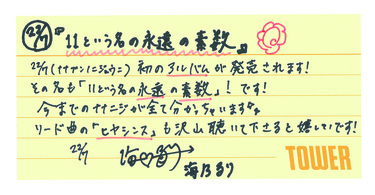 22/7 『11という名の永遠の素数』
22/7(ナナブンノニジュウニ)初のアルバムが発売されます!
その名も「11という名の永遠の素数」!です!
今までのナナニジが全て分かっちゃいます
リード曲の「ヒヤシンス」も沢山聴いて下さると嬉しいです!
22/7 海乃るり
TOWER